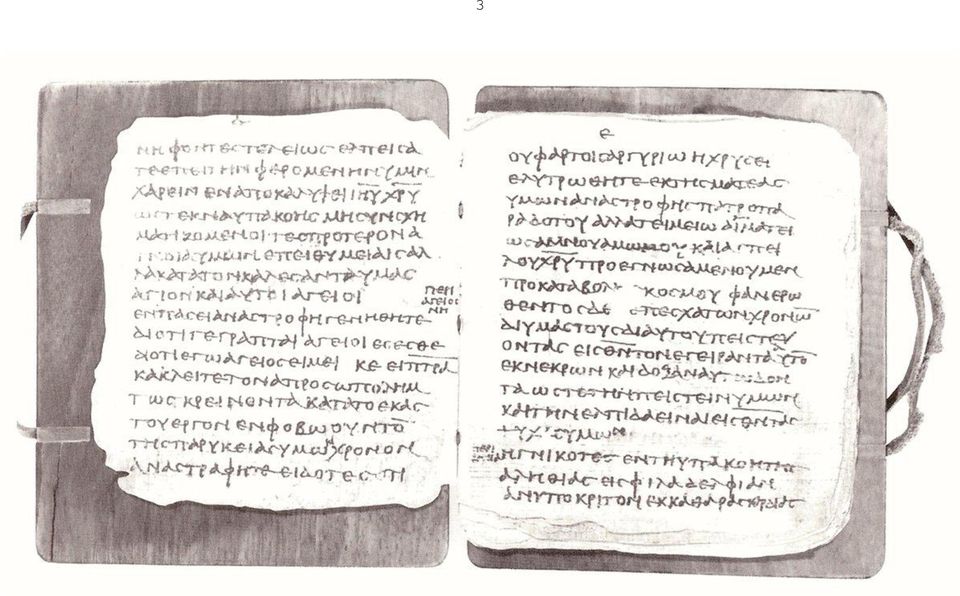 3
Δ
ΝΗΦΟΝΤΕϹΤΕΛΕΙΩϹΕΛΠΕΙϹΑ
ΤΕΕΠΕΙΤΗΝΦΕΡΟΜΕΝΗΝΥΜΙΝ
ΧΑΡΕΙΝΕΝΑΠΟΚΑΛΥΨΕΙΙΗΥΧΡΥ
ΩϹΤΕΚΝΑΥΠΑΚΟΗϹΜΗϹΥΝϹΧΗ
ΜΑΤΙΖΟΜΕΝΟΙΤΕϹΠΡΟΤΕΡΟΝΑ
ΓΝΟΙΑΥΜΩΝΕΠΕΙΘΥΜΕΙΑΙϹΑΛ
ΛΑΚΑΤΑΤΟΝΚΑΛΕϹΑΝΤΑΥΜΑϹ
ΑΓΙΟΝΚΑΙΑΥΤΟΙΑΓΕΙΟΙ
ΠΕΡΙ
ΑΓΕΙΟϹ
ΝΗ
ΕΝΠΑϹΕΙΑΝΑϹΤΡΟΦΗΓΕΝΗΘΗΤΕ
ΔΙΟΤΙΓΕΓΡΑΠΤΑΙΑΓΕΙΟΙΕϹΕϹΘΕ
ΔΙΟΤΙΕΓΩΑΓΕΙΟϹΕΙΜΕΙ ΚΕΕΙΠΤΡΑ
ΚΑΚΛΕΙΤΕΤΟΝΑΠΡΟϹΩΠΟΛΗΜ
ΤΩϹΚΡΕΙΝΟΝΤΑΚΑΤΑΤΟΕΚΑϹ
ΤΟΥΕΡΓΟΝΕΝΦΟΒΩΟΥΝΤΟ
ΤΗϹΠΑΡΥΚΕΙΑϹΥΜΩΝΧΡΟΝΟΝ
ΑΝΑϹΤΡΑΦΗΤΕΕΙΔΟΤΕϹΤΙ
Ε
ΟΥΦΑΡΤΟΙϹΑΡΓΥΡΙΩΗΧΡΥϹΕΙ
ΕΛΥΤΡΩΘΗΤΕΕΚΤΗϹΜΑΤΕΑϹ
ΥΜΩΝΑΝΑϹΤΡΟΦΗϹΠΑΤΡΟΠΑ
ΡΑΔΟΤΟΥΑΛΛΑΤΕΙΜΕΙΩΑΙΜΑΤΕΙ
ΩϹΑΜΝΟΥΑΜΩΜΟΥΚΑΙΑϹΠΕΙ
ΛΟΥΧΡΥΠΡΟΕΓΝΩϹΑΜΕΝΟΥΜΕΝ
ΠΡΟΚΑΤΑΒΟΛΗϹΚΟϹΜΟΥΦΑΝΕΡΩ
ΘΕΝΤΟϹΔΕ ΕΠΕϹΧΑΤΩΝΧΡΟΝΩ
ΔΙΥΜΑϹΤΟΥϹΔΙΑΥΤΟΥΠΕΙϹΤΕΥ
ΟΝΤΑϹΕΙϹΘΝΤΟΝΕΓΕΙΡΑΝΤΑΑΥΤΟ
ΕΚΝΕΚΡΩΝΚΑΙΔΟΞΑΝΑΥΤΩΔΟΝ
ΤΑΩϹΤΕΤΗΝΠΕΙϹΤΕΙΝΥΜΩΝ
ΚΑΙΤΗΝΕΛΠΙΔΑΕΙΝΑΙΕΙϹΘΝΤΑϹ
ΨΥΧΑϹΥΜΩΝ
ΠΕΡΙ
ΗΓΝΙΚΟΤΕϹΕΝΤΗΥΠΑΚΟΗΤΗϹ
ΑΛΗΘΙΑϹΕΙϹΦΙΛΑΔΕΛΦΙΑΝ
ΑΝΥΠΟΚΡΙΤΟΝΕΚΚΑΘΑΡΑϹΚΡΔΙΑϹ